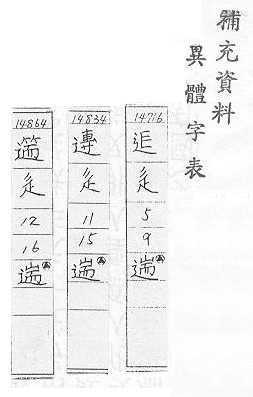 補充資料
異體字表
14716
辵
5
9
遄
14834
辵
11
15
遄
14864
辵
12
16
遄